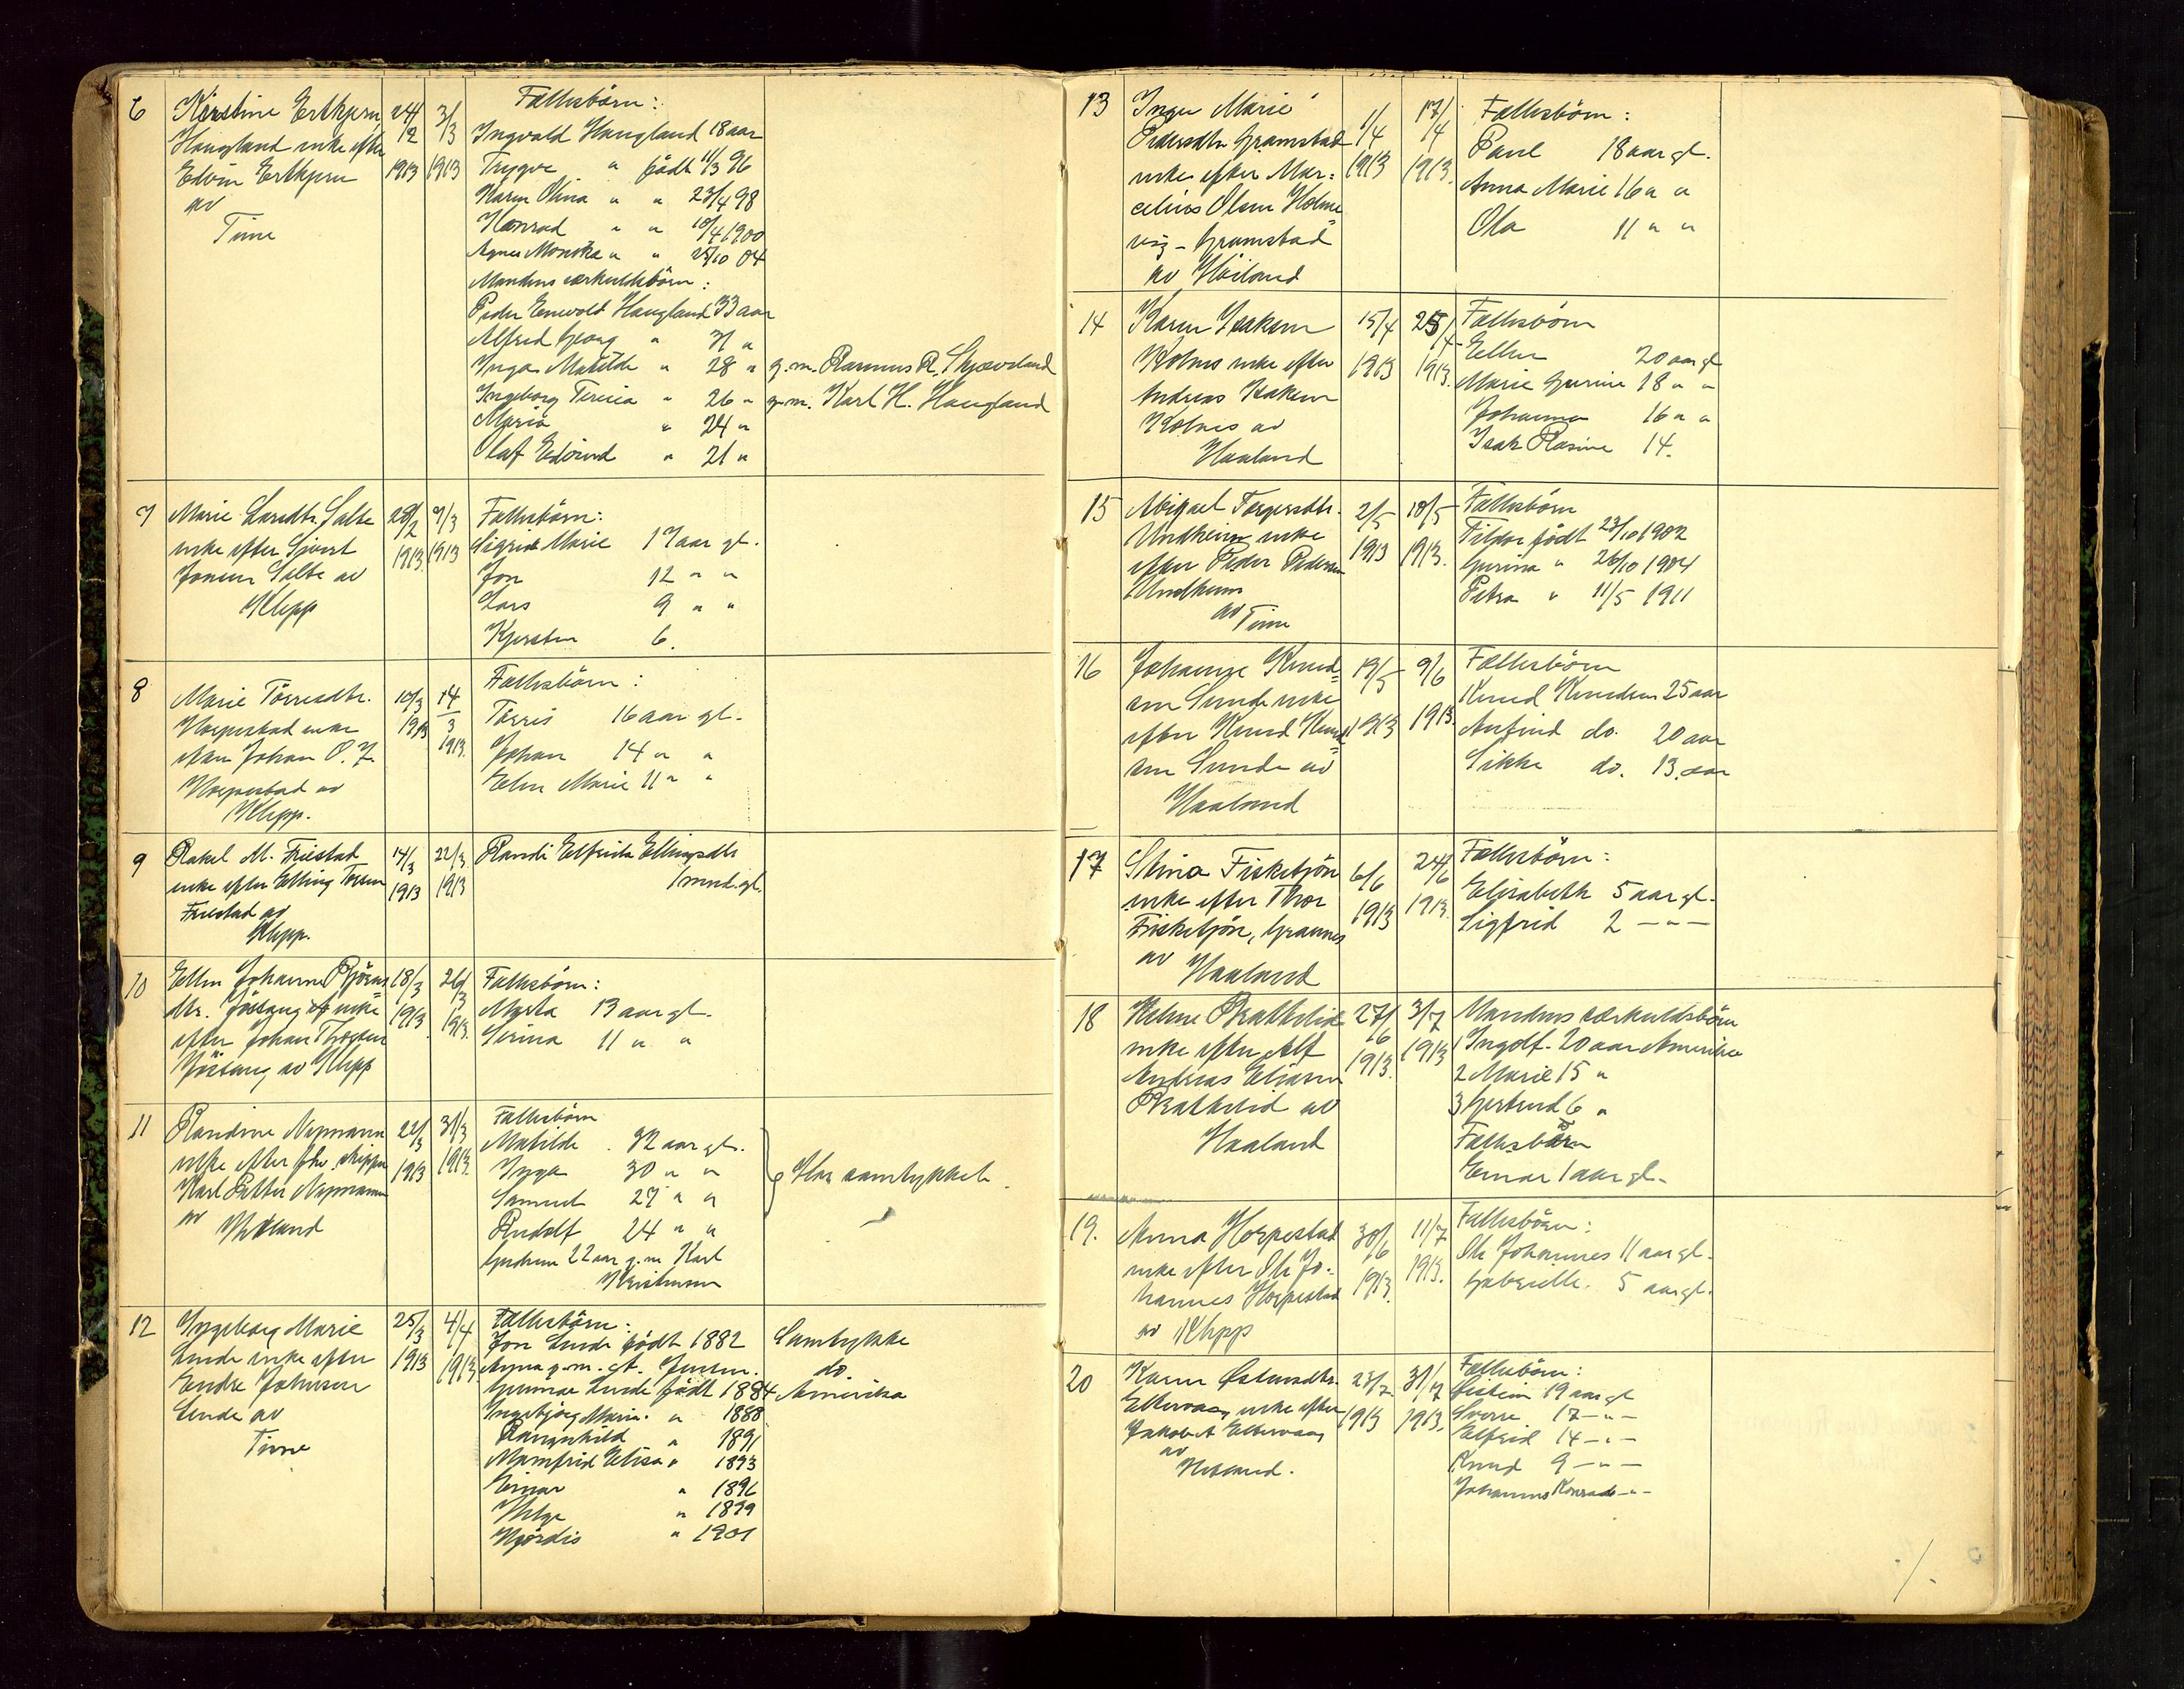 6 Kirstine Ertkjern 24/2 3/3 Fællesbörn:
Haugland enke efter 1913 1913 Ingvald Haugland 18 aar
Edvin Ertkjern Trygve " född 11/3 96
av Karen Olina " " 23/4 98
Time Konrad " " 10/4 1900
Agnes Monika " " 25/10 04
Mandens særkuldsbörn:
Peder Enevold Haugland 33 aar
Alfred Georg " 31 "
Inga Matilde " 28 " g.m. Rasmus R. Skjæveland
Ingeborg Tericia " 26 " g.m. Karl H. Haugland
Maria " 24 "
Olaf Edvind " 21 "
7 Marie Larsdtr. Salte 28/2 7/3 Fællesbörn:
enke efter Sjurt 1913. 1913 Sigrid Marie 17 aar gl.
Jonsen Salte av Jon 12 " "
Klepp Lars 9 " "
Kjersten 6.
8 Marie Törresdtr. 10/3 14/3 Fællesbörn:
Horpestad enke 1913 1913. Törris 16 aar gl.
Johan O. J. Johan 14 " "
Horpestad av Elen Marie 11 " "
Klepp.
9 Rakel M. Friestad 14/3 22/3 Randi Elfrida Ellingsdtr
enke efter Elling Tossen 1913 1913 1 mnd. gl.
Friestad av
Klepp.
10 Ellen Johanne Björns= 18/3 26/3 Fællesbörn:
dtr. Jösang enke 1913. 1913. Marta 13 aar gl.
efter Johan Thorsen Serina 11 " "
Jösang av Klepp
11 Randine Nymann 22/3 31/3 Fællesbörn
enke efter fhv. skipper 1913 1913. Matilde 32 aar gl.
Karl Petter Nymann Inga 30 " " Har samtykket.
av Samuel 27 " "
Haaland Rudolf 24 " "
Gudrun 22 aar g.m. Karl
Kristensen
12 Ingeborg Marie 25/3 4/4 Fællesbörn:
Lende enke efter 1913 1913 Jon Lende född 1882 Samtykke
Endre Johnsen Anna g.m. Jensen. do.
Lende av Gunnar Lende född 1884 Amerika
Time Ingebjörg Marie " 1888
Rangnhild " 1891
Memfrid Elisa " 1893
Einar " 1896
Helge " 1899
Hjördis " 1901
13 Inger Marie 1/4 17/4 Fællesbörn:
Pedersdtr. Gramstad 1913 1913. Paul 18 aar gl.
enke efter Mar= Anna Marie 16 " "
celius Olsen Holme Ola 11 " "
vig - Gramstad
av Höiland
14 Karen Isaksen 15/4 25/4 Fællesbörn
Kolnes enke efter 1913 1913. Ellen 20 aar gl
Andreas Isaksen Marie Gurine 18 " "
Kolnes av Johanna 16 " "
Haaland Isak Rasine 14.
15 Abigael Torgersdtr. 2/5 10/5 Fællesbörn
Undheim enke 1913 1913. Filpor född 23/10 1902
efter Peder Pedersen Gurina " 26/10 1904
Undheim Petra " 11/5 1911
av Time
16 Johanne Knud= 19/5 9/6 Fællesbörn
sen Sunde enke 1913 1913. Knud Knudsen 25 aar
efter Knud Knud= Anfind do. 20 aar
sen Sunde av Sikke do. 13. aar
Haaland
17 Stina Fisketjön 6/6 24/6 Fællesbörn:
enke efter Thor 1913 1913. Elisabeth 5 aar gl.
Fisketjön, Grannes Sigfrid 2 - " -
av Haaland
18 Helene Brattelid 27/6 3/7 Mandens særkuldsbörn
enke efter Alf 1913. 1913 1 Ingolf. 20 aar Amerika
Andreas Eliasen 2 Marie 15 "
Brattelid av 3 Gertrud 6 "
Haaland Fællesbarn
Einar 1 aar gl.
19. Anna Horpestad 30/6 11/7 Fællesbörn:
enke efter Ole Jo= 1913. 1913. Ole Johannes 11 aar gl.
hannes Horpestad Gabrielle. 5 aar gl.
av Klepp
20 Karen Østensdtr. 23/7. 31/7 Fællesbörn:
Eltervaag enke efter 1913 1913. Østein 19 aar gl
Jakob A Eltervaag Sverre 17 - " -
av Elfrid 14 - " -
Haaland. Knud 9 - " -
Johannes Konrad - " -
./.